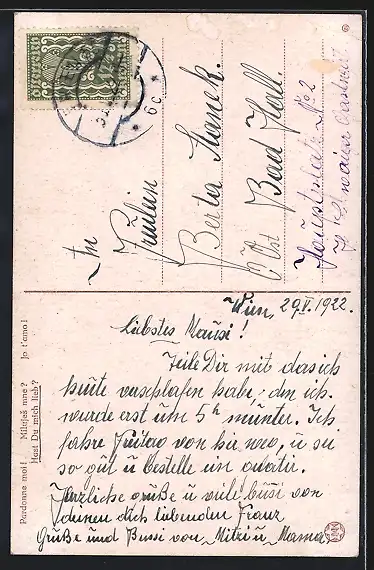 An
Fräulein
Berta Stanek.
Bad Hall.
O/Öst
No 2
Wien, 29.V.1922.
Liebstes Mausi!
Teile Dir mit das ich
heute verschlafen habe, den ich
wurde erst um 5h munter. Ich
fahre Freitag von hie weg, u sei
so gut u bestelle ein
Herzliche Grüße u viele bussi von
deinen dich liebenden Franz
Grüße und Bussi von Mitzi u Mama
Pardonne moi! Miluješ mne? Jo t'amo!
Hast Du mich lieb?